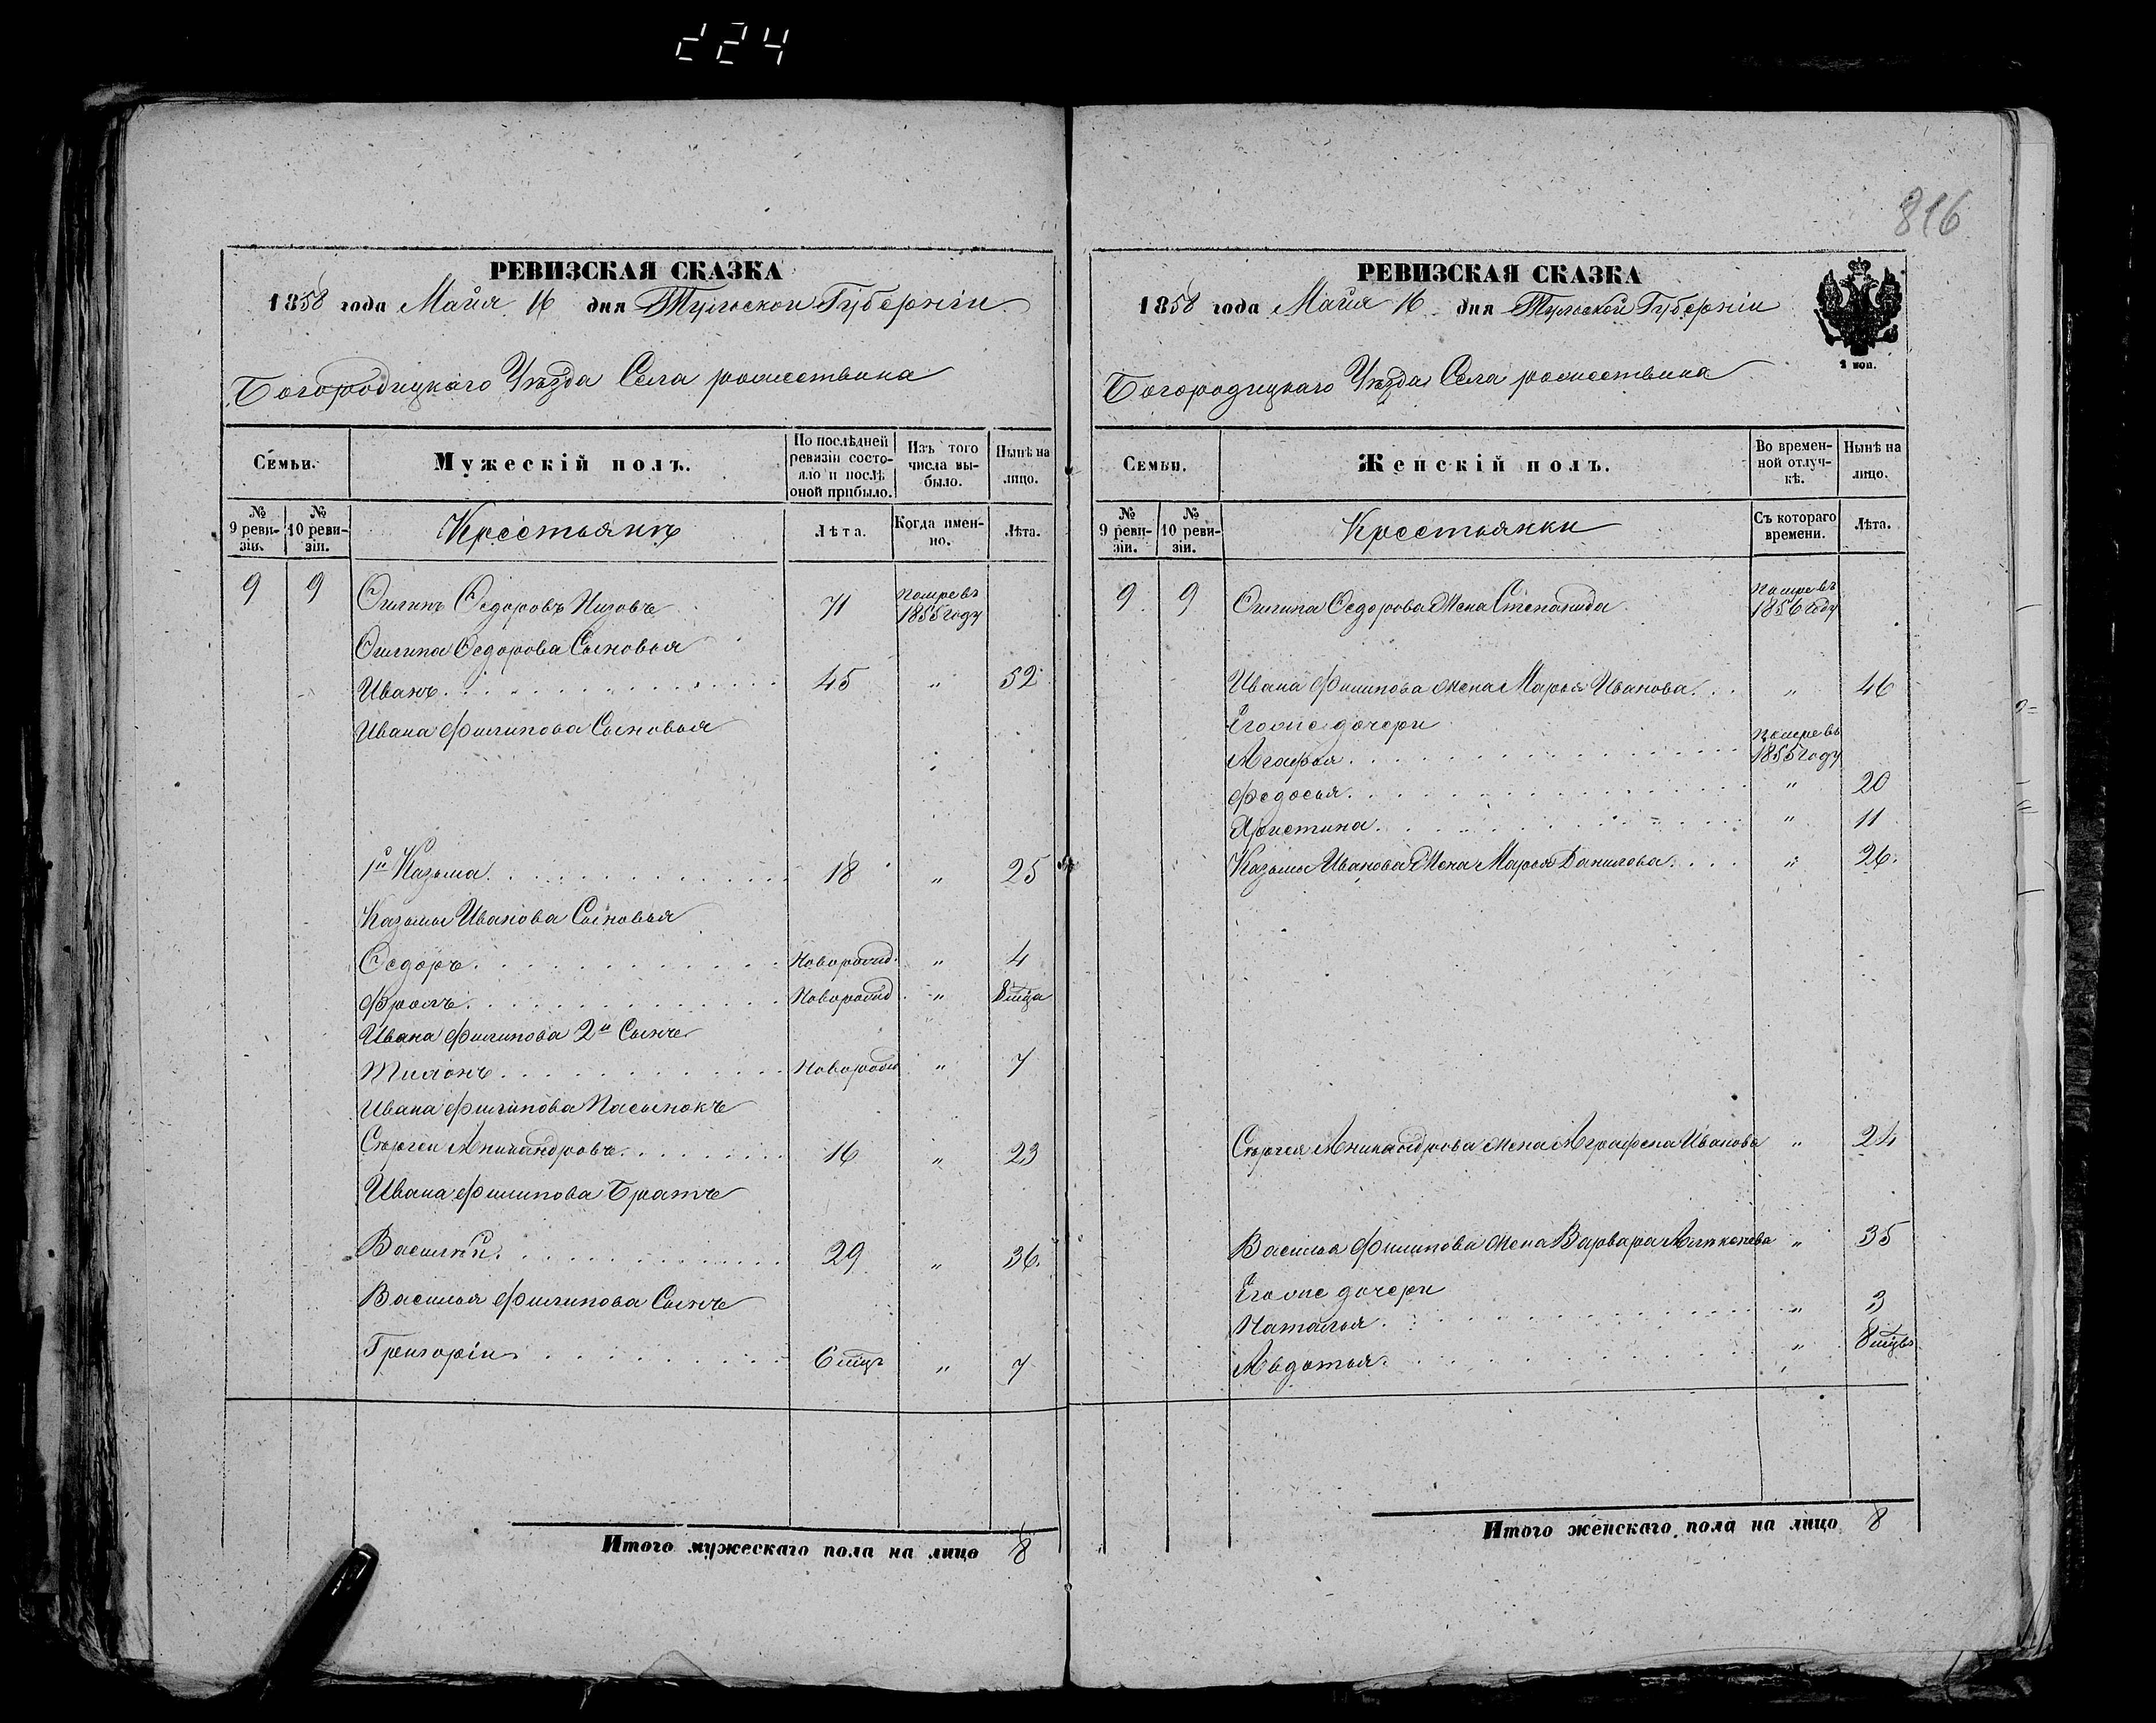 224
816
РЕВИЗСКАЯ СКАЗКА
1858 года Майя 16 дня Тульской Губерніи
Богородицкаго Уѣзда Села рожествина
Семьи.
Мужескій полъ.
По послѣдней ревизіи состояло и послѣ оной прибыло.
Изъ того числа выбыло.
Нынѣ на лицо.
№ 9 ревизіи.
№ 10 ревизіи.
Крестьянѣ
Лѣта.
Когда именно.
Лѣта.
9 9 Ѳилипъ Ѳедоровъ 71 помре въ 1855 году
Ѳилипа Ѳедорова Сыновья
Иванъ 45 " 52
Ивана Филипова Сыновья
1й Казьма 18 " 25
Казьмы Иванова Сыновья
Ѳедоръ Новорожд. " 4
Фролъ Новорожд " 8 мца
Ивана Филипова 2й Сынъ
Тихонъ Новорожд " 7
Ивана Филипова Пасынокъ
Сѣргеи Аникандровъ 16 " 23
Ивана Филипова Братъ
Василѣй 29 " 36
Василья Филипова Сынъ
Григоріи 6 мцъ " 7
Итого мужескаго пола на лицо 8
РЕВИЗСКАЯ СКАЗКА
1858 года Майя 16 дня Тульской Губерніи
Богородицкаго Уѣзда Села рожествина
2 коп.
Семьи.
Женскій полъ.
Во временной отлучкѣ.
Нынѣ на лицо.
№ 9 ревизіи.
№ 10 ревизіи.
Крестьянки
Съ котораго времени.
Лѣта.
9 9 Ѳилипа Ѳедорова Жена Степанида помре въ 1856 году
Ивана Филипова жена Марья Иванова " 46
Егожъ дочери
Агафья помре въ 1855 году
Федосья " 20
Христина " 11
Казьмы Иванова Жена Марья Данилова " 26
Сѣргея Аникандрова жена Аграфена Иванова " 24
Василья Филипова жена Варвара " 35
Егожъ дочери
Наталья " 3
Авдотья " 8 мцъ
Итого женскаго пола на лицо 8